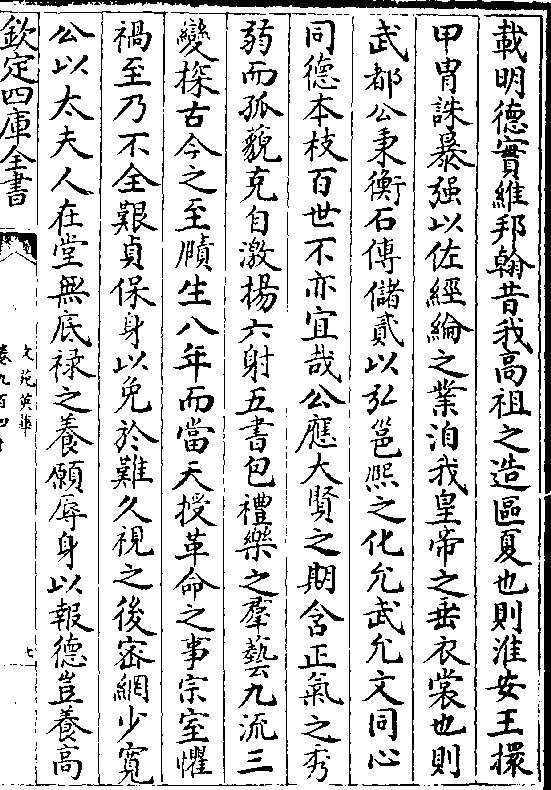 載明德實維邦翰昔我髙祖之造區夏也則淮安王擐
甲胄誅暴强以佐經綸之業洎我皇帝之垂衣裳也則
武都公秉衡石傅儲貳以弘邕熈之化允武允文同心
同德本枝百世不亦宜哉公應大賢之期含正氣之秀
弱而孤藐克自激揚六射五書包禮樂之羣藝九流三
變探古今之至賾生八年而當天授革命之事宗室懼
禍至乃不全艱貞保身以免於難久視之後密網少寛
公以太夫人在堂無底禄之養願辱身以報德豈養髙
欽定四庫全書
文苑英華
卷九百四十
七